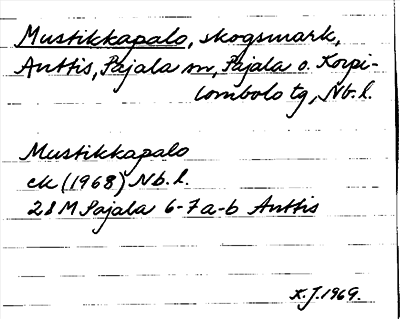 Mustikkapalo, skogsmark,
Anttis, Pajala sn, Pajala o. Korpi-
lombolo tg, Nb. l.
Mustikkapalo
ek (1968) Nb. l.
28 M Pajala 6-7 a-b Anttis
K. J. 1969.